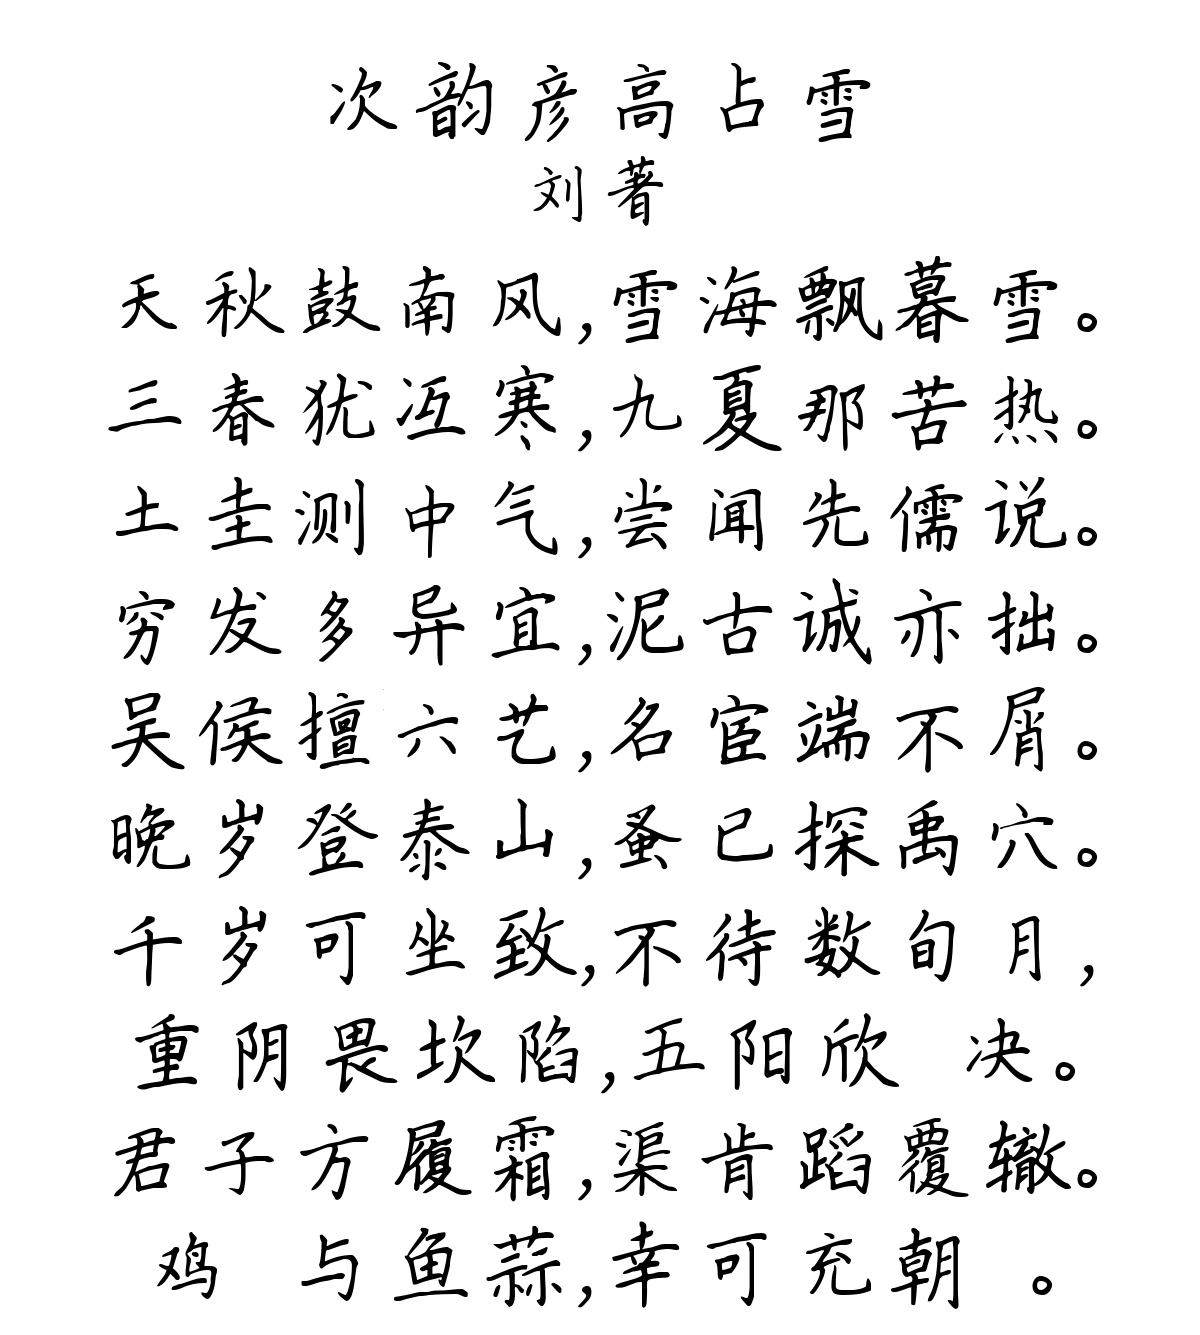 次韵彦高占雪
刘著
天秋鼓南风,雪海飘暮雪。
三春犹冱寒,九夏那苦热。
土圭测中气,尝闻先儒说。
穷发多异宜,泥古诚亦拙。
吴侯擅六艺,名宦端不屑。
晚岁登泰山,蚤已探禹穴。
千岁可坐致,不待数旬月,
重阴畏坎陷,五阳欣 决。
君子方履霜,渠肯蹈覆辙。
鸡 与鱼蒜,幸可充朝 。